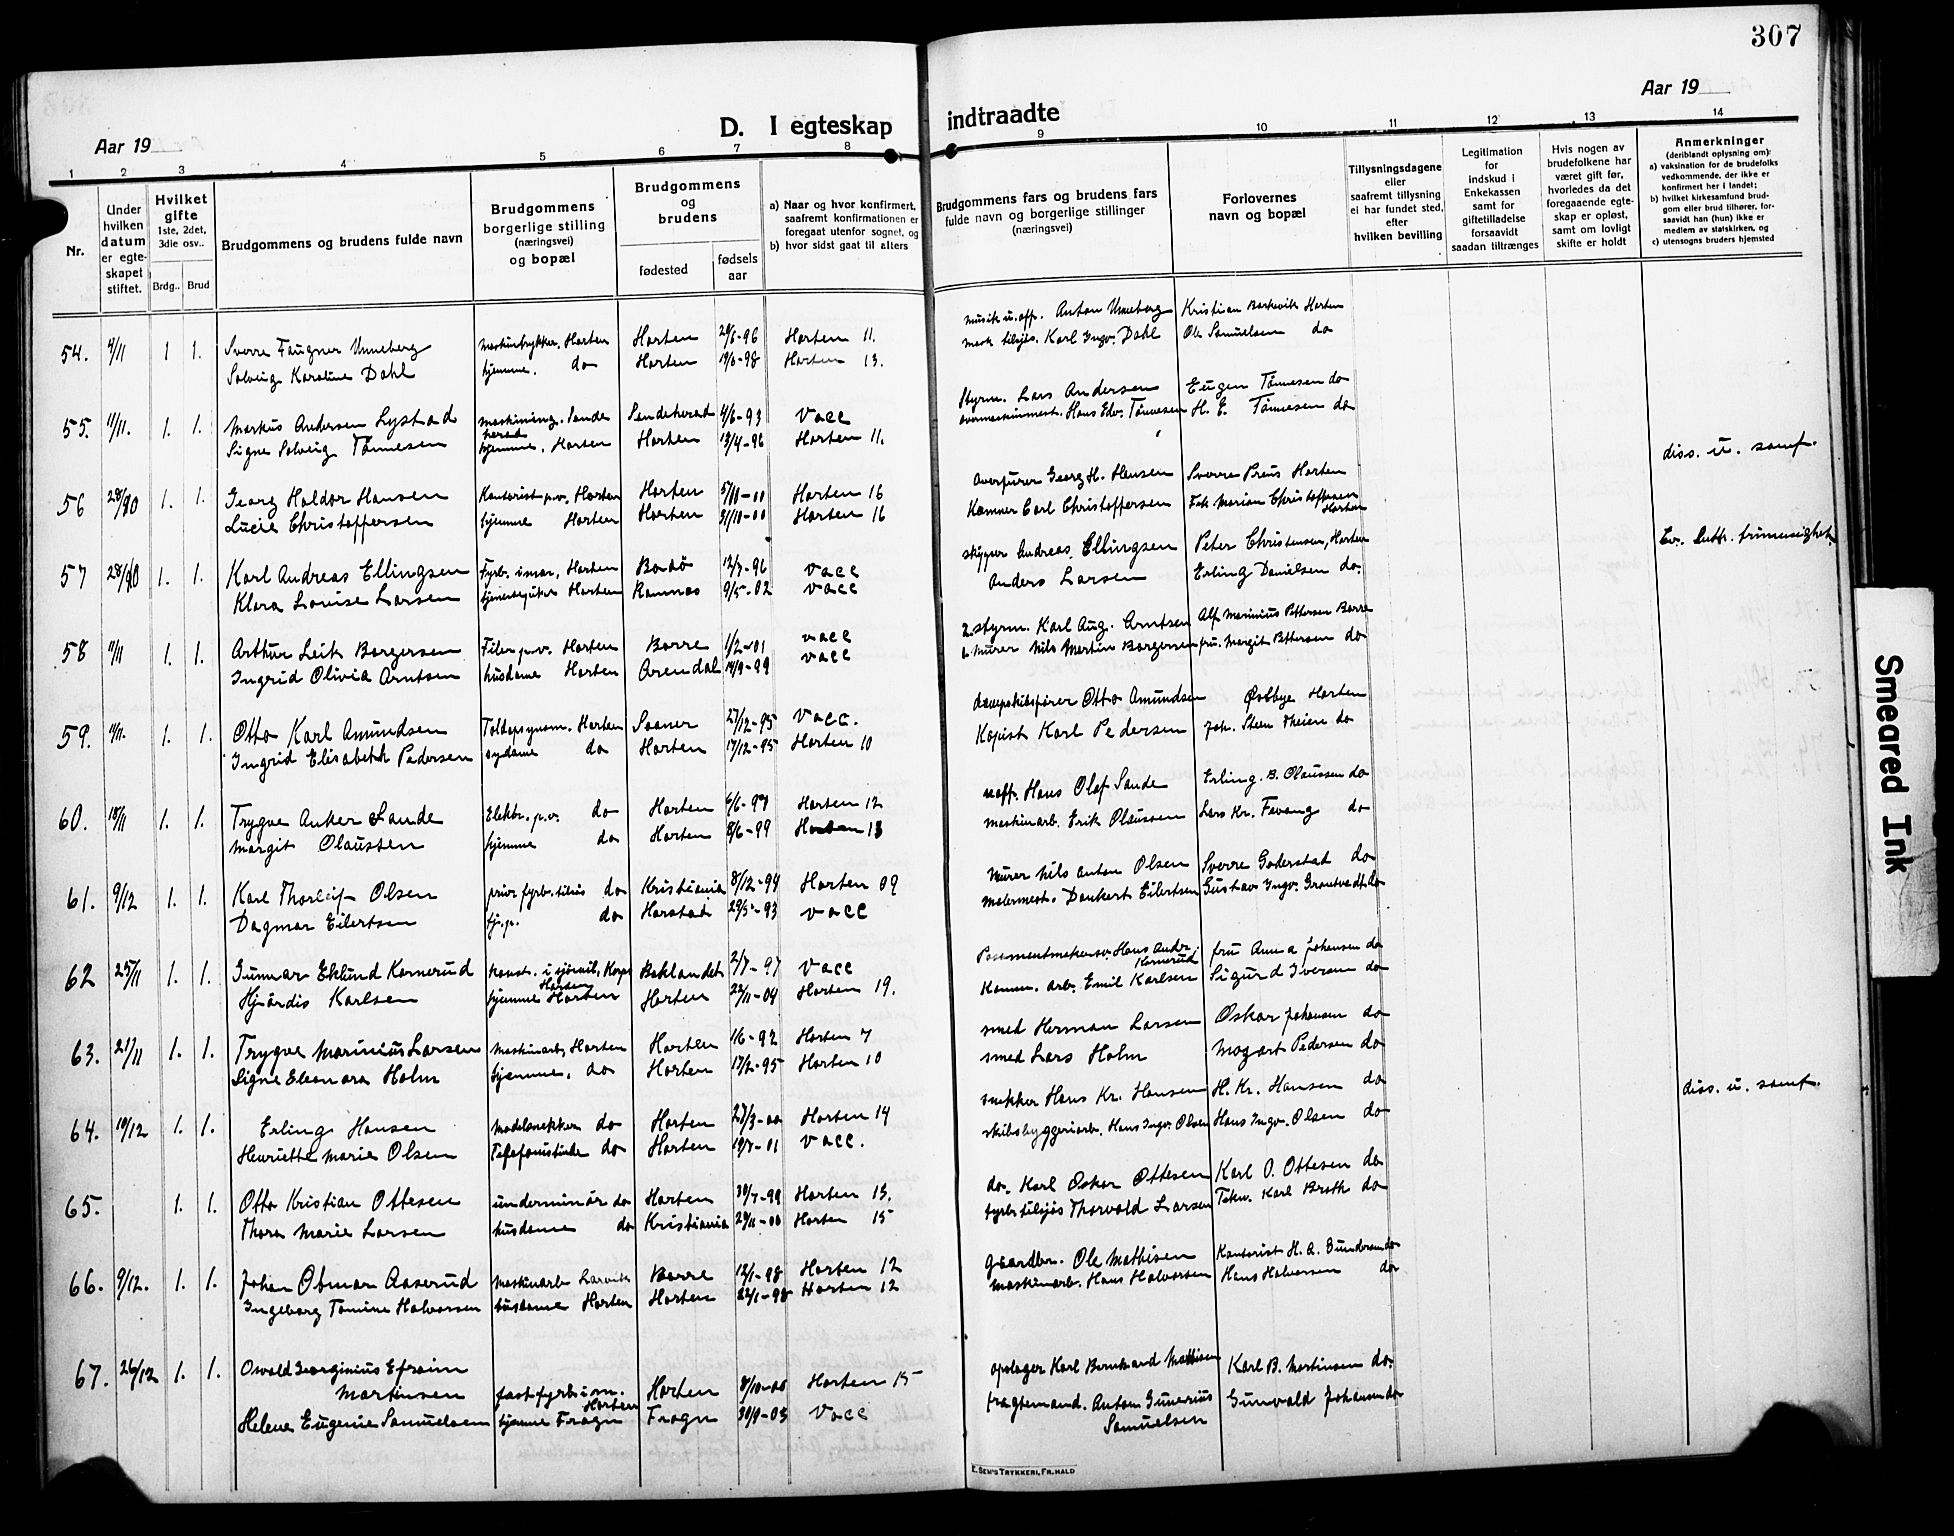 307
Aar 19
Aar 19
D. I egteskap indtraadte
1 2 3 4 5 6 7 8 9 10 11 12 13 14
Nr.
Under hvilken datum er egte-skapet stiftet.
Hvilket gifte 1ste, 2det, 3die osv..
Brdg.. Brud
Brudgommens og brudens fulde navn
Brudgommens borgerlige stilling (næringsvei) og bopæl
Brudgommens og brudens
fødested
fødsels aar
a) Naar og hvor konfirmert, saafremt konfirmationen er foregaat utenfor sognet, og
b) hvor sidst gaat til alters
Brudgommens fars og brudens fars fulde navn og borgerlige stillinger (næringsvei)
Forlovernes navn og bopæl
Tillysningsdagene eller saafremt tillysning ei har fundet sted, efter hvilken bevilling
Legitimation for indskud i Enkekassen samt for giftetilladelse forsaavidt saadan tiltrænges
Hvis nogen av brudefolkene har været gift før, hvorledes da det foregaaende egte-skap er opløst, samt om lovligt skifte er holdt
Anmerkninger (deriblandt oplysning om):
a) vaksination for de brudefolks vedkommende, der ikke er konfirmert her i landet;
b) hvilket kirkesamfund brud-gom eller brud tilhører, for-saavidt han (hun) ikke er medlem av statskirken, og
c) utensogns bruders hjemsted
54. 4/11 1 1. Sverre Faugner Unneberg Horten Horten 29/6-96 Horten 11. musik u.off. Anton Unneberg Kristian Borkevik Horten
Solveig Karoline Dahl hjemme. do Horten 19/6-98 Horten 13. Karl Ingv. Dahl Ole Samuelsen do
55. 11/11. 1. 1. Markus Andersen Lystad Sandeherad 4/6-93 vacc Styrm. Lars Andersen Eugen Tønnesen do
Signe Solveig Tønnesen hjemme, Horten Horten 13/4-96 Horten 11. Hans Edv. Tønnesen H. E. Tønnesen do
diss. u. samf.
56 28/10 1. 1. Georg Haldor Hansen Kontorist p.v. Horten Horten 5/11-00 Horten 16 Georg H. Hansen Sverre Preus Horten
Lucie Christoffersen hjemme Horten Horten 31/10-00 Horten 16 Carl Christoffersen Frk Marian Christoffersen Horten
57 28/10 1. 1. Karl Andreas Ellingsen Fyrb. i mar, Horten Bodø 12/7-96 vacc skipper Andreas Ellingsen Peter Christensen, Horten Ev. Luth. frimenighet
Klara Louise Larsen Horten Ramnes 9/5-02 vacc Anders Larsen Erling Danielsen do.
58 11/11 1. 1. Arthur Leik Borgersen Filer p.v. Horten Borre 1/2-01 vacc 2. styrm. Karl Aug. Arntsen Alf Marinius Pettersen Borre
Ingrid Olivia Arntsen husdame Horten Arendal 14/9-99 vacc murer Nils Martin Borgersen fru. Margit Pettersen do
59. 11/11. 1. 1. Otto Karl Amundsen Horten Sooner 27/12-95 vacc. Otto Amundsen Østbye Horten
Ingrid Elisabeth Pedersen sydame do Horten 17/12-95 Horten 10 Kopist Karl Pedersen Joh. Steen Theien do
60. 18/11 1. 1. Trygve Anker Sande Elektr. p.v. do Horten 6/6-97 Horten 12 Hans Olaf Sande Erling. B. Olaussen do
Margit Olaussen hjemme do Horten 8/6-99 Horten 13 maskinarb. Erik Olaussen Lars Kr. Fevang do
61. 9/12 1. 1. Karl Thorleif Olsen do Kristiania 8/12-94 Horten 09 Murer Nils Anton Olsen Sverre Goderstad do
Dagmar Eilertsen do Harstad 29/5-93 vacc malermest. Dankert Eilertsen Gustav Ingv. Grantvedt do
62 25/11 1. 1. Gunnar Eklund Kornerud Horten Baklandet 2/7-97 vacc Hans Andr. Kornerud fru Anna Johansen do
Hjørdis Karlsen hjemme Horten Horten 22/11-04 Horten 19. Komm. arb. Emil Karlsen Sigurd Iversen do
63. 21/11 1. 1. Trygve Marinius Larsen maskinarb, Horten Horten 1/6-92 Horten 7 smed Herman Larsen Oskar Johansen do
Signe Eleonora Holm hjemme. do Horten 17/2-95 Horten 10 smed Lars Holm Mozart Pedersen do
64. 10/12 1. 1. Erling Hansen modelsnekker do Horten 27/3-00 Horten 14 snekker Hans Kr. Hansen H. Kr. Hansen do diss. u. samf.
Henriette Marie Olsen Telefonistinde do Horten 19/7-01 vacc. skibsbyggeriarb. Hans Ingv. Olsen Hans Ingv. Olsen do
65. 1. 1. Otto Kristian Ottesen underminør do Horten 30/7-99 Horten 15. do. Karl Oskar Ottesen Karl O. Ottesen do
Thora Marie Larsen husdame do Kristiania 29/11-00 Horten 15 Thorvald Larsen Karl Broth do
66. 9/12. 1. 1. Johan Otmar Aaserud maskinarb Larvik Borre 12/1-98 Horten 12 gaardbr. Ole Mathisen Kontorist H. A. Gundersen do
Ingeborg Tomine Halvorsen husdame Horten Horten 22/1-98 Horten 12 maskinarb. Hans Halvorsen Hans Halvorsen do
67. 26/12 1. 1. Osvald Georginius Efraim
Martinsen fast fyrb i m. Horten Horten 8/10-00 Horten 15 opslager Karl Bernhard Mathisen Karl B. Martinsen do.
Helene Eugenie Samuelsen hjemme Frogn Frogn 30/9-03 Vacc fragtemand. Anton Gunerius Samuelsen Gunvald Johansen do
E. SEM'S TRYKKERI, FR.HALD
Smeared Ink